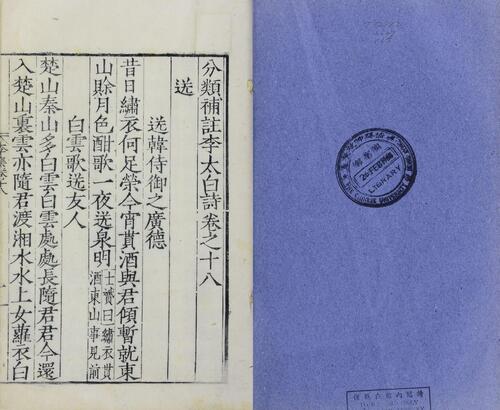 分類補註李太白詩卷之十八
送
送韓侍御之廣德
昔日繡衣何足榮今宵貰酒與君傾暫就東
山賒月色酣歌一夜送泉明士贇曰繡衣貰
酒東山事見前
白雲歌送友人
楚山秦山多白雲白雲處處長隨君君今還
入楚山裏雲亦隨君渡湘水水上女蘿衣白
26 FEB 1968
LIBRARY
THE CHINESE UNIVERSITY OF